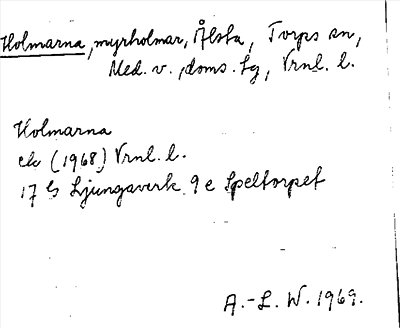 Holmarna, myrholmar, Ålsta, Torps sn,
Med. v. doms. sg, Vrnl. l.
Holmarna
ek (1968) Vrnl. l.
17 G Ljungaverk 9 e Speltorpet
A.-L. W. 1969.